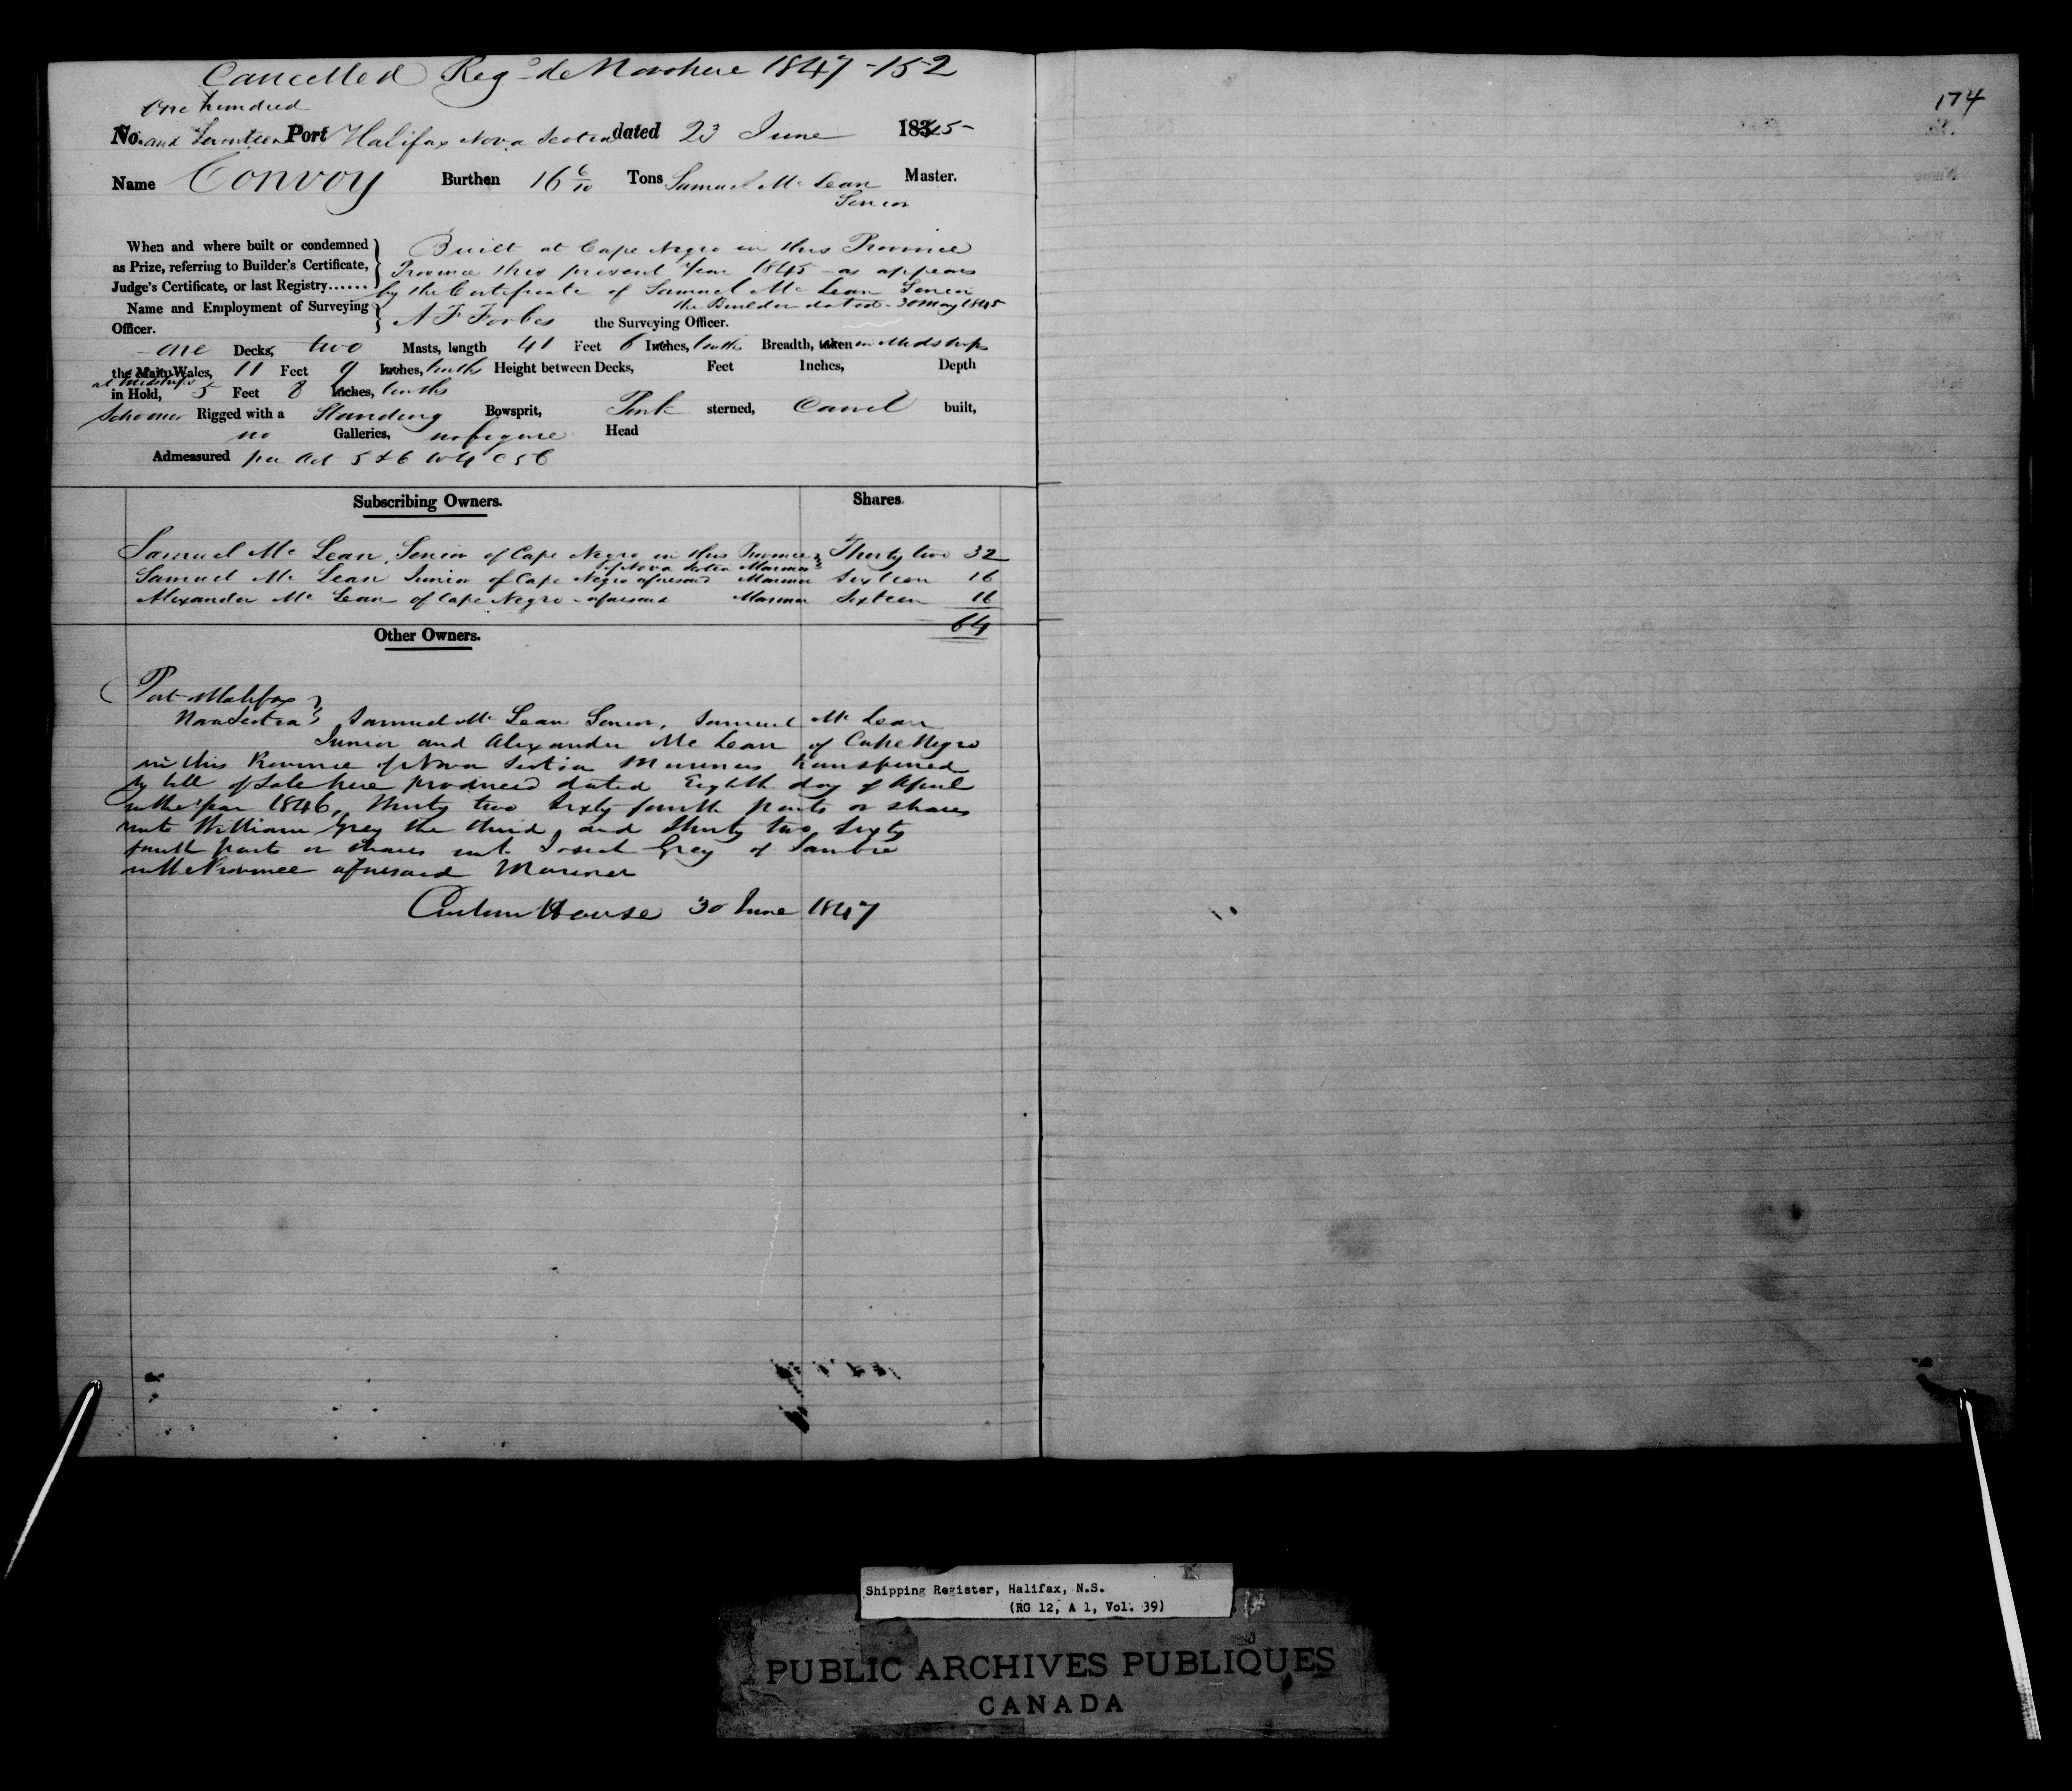 Cancelled Reg de Novo here 1847 - 152
174
One hundred
No. and Seventeen Port Halifax Nova Scotia dated 23 June 1845 -
Name Convoy Burthen 16 6/10 Tons Samuel Mc Lean Master.
Senior
When and where built or condemned
as Prize, referring to Builder's Certificate,
Judge's Certificate, or last Registry......
Built at Cape Negro in this Province
Province this present Year 1845 - as appears
by the Certificate of Samuel Mc Lean Senior
the Builder dated - 30 May 1845
Name and Employment of Surveying
Officer.
A F Forbes the Surveying Officer.
- one Decks, two Masts, length 41 Feet 6 Inches, tenths Breadth, taken in Midships
the Main Wales, 11 Feet 9 Inches, tenths Height between Decks, Feet Inches, Depth
at Midships
in Hold, 5 Feet 8 Inches, tenths
Schooner Rigged with a Standing Bowsprit, Pink sterned, Carvel built,
no Galleries, no figure Head
Admeasured per Act 5 & 6 W 4 C 56
Subscribing Owners. Shares.
Samuel Mc Lean, Senior of Cape Negro in this Province Thirty two 32
of Nova Scotia Mariner
Samuel Mc Lean Junior of Cape Negro aforesaid Mariner Sixteen 16
Alexander Mc Lean of Cape Negro - aforesaid Mariner Sixteen 16
64
Other Owners.
Port Halifax
Nova Scotia Samuel Mc Lean Senior, Samuel Mc Lean
Junior and Alexander Mc Lean of Cape Negro
in this Province of Nova Scotia Mariners transferred
by bill of Sale here produced dated Eighth day of April
in the Year 1846, thirty two Sixty fourth parts or shares
unto William Grey the third, and thirty two Sixty
fourth parts or shares unto Josiah Grey of Sambro
in the Province aforesaid Mariner
Custom House 30 June 1847
Shipping Register, Halifax, N.S.
(RG 12, A 1, Vol. 39)
PUBLIC ARCHIVES PUBLIQUES
CANADA